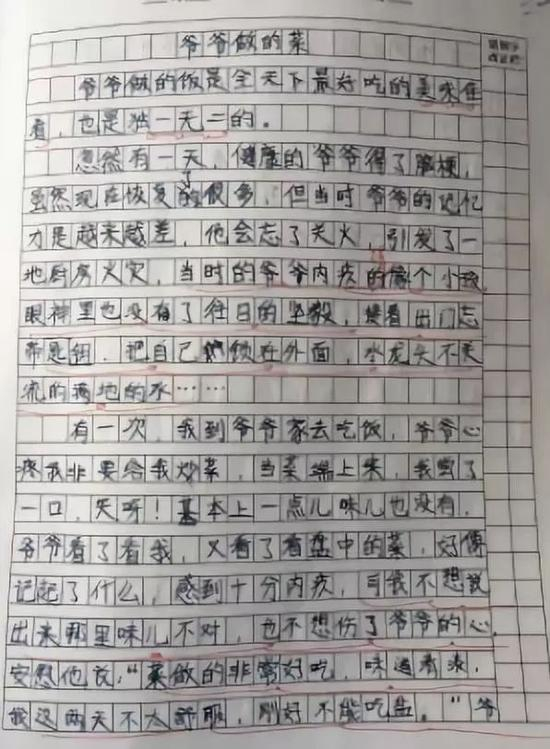 爷爷做的菜
爷爷做的饭是全天下最好吃的美味佳
肴，也是独一无二的。
忽然有一天，健康的爷爷得了脑梗，
虽然现在恢复了很多，但当时爷爷的记忆
力是越来越差，他会忘了关火，引发了一
地厨房火灾，当时的爷爷内疚的像个小孩
眼神里也没有了往日的坚毅，接着出门忘
带是钥，把自己锁在外面，水龙头不关
流的满地的水……
有一次，我到爷爷家去吃饭，爷爷心
疼我非要给我炒菜，当菜端上来，我尝了
一口，天呀！基本上一点儿味儿也没有，
爷爷看了看我，又看了看盘中的菜，好像
记起了什么，感到十分内疚，可我不想说
出来那里味儿不对，也不想伤了爷爷的心，
安慰他说：“菜做的非常好吃，味道清淡，
我这两天不太舒服，刚好不能吃盐。”爷